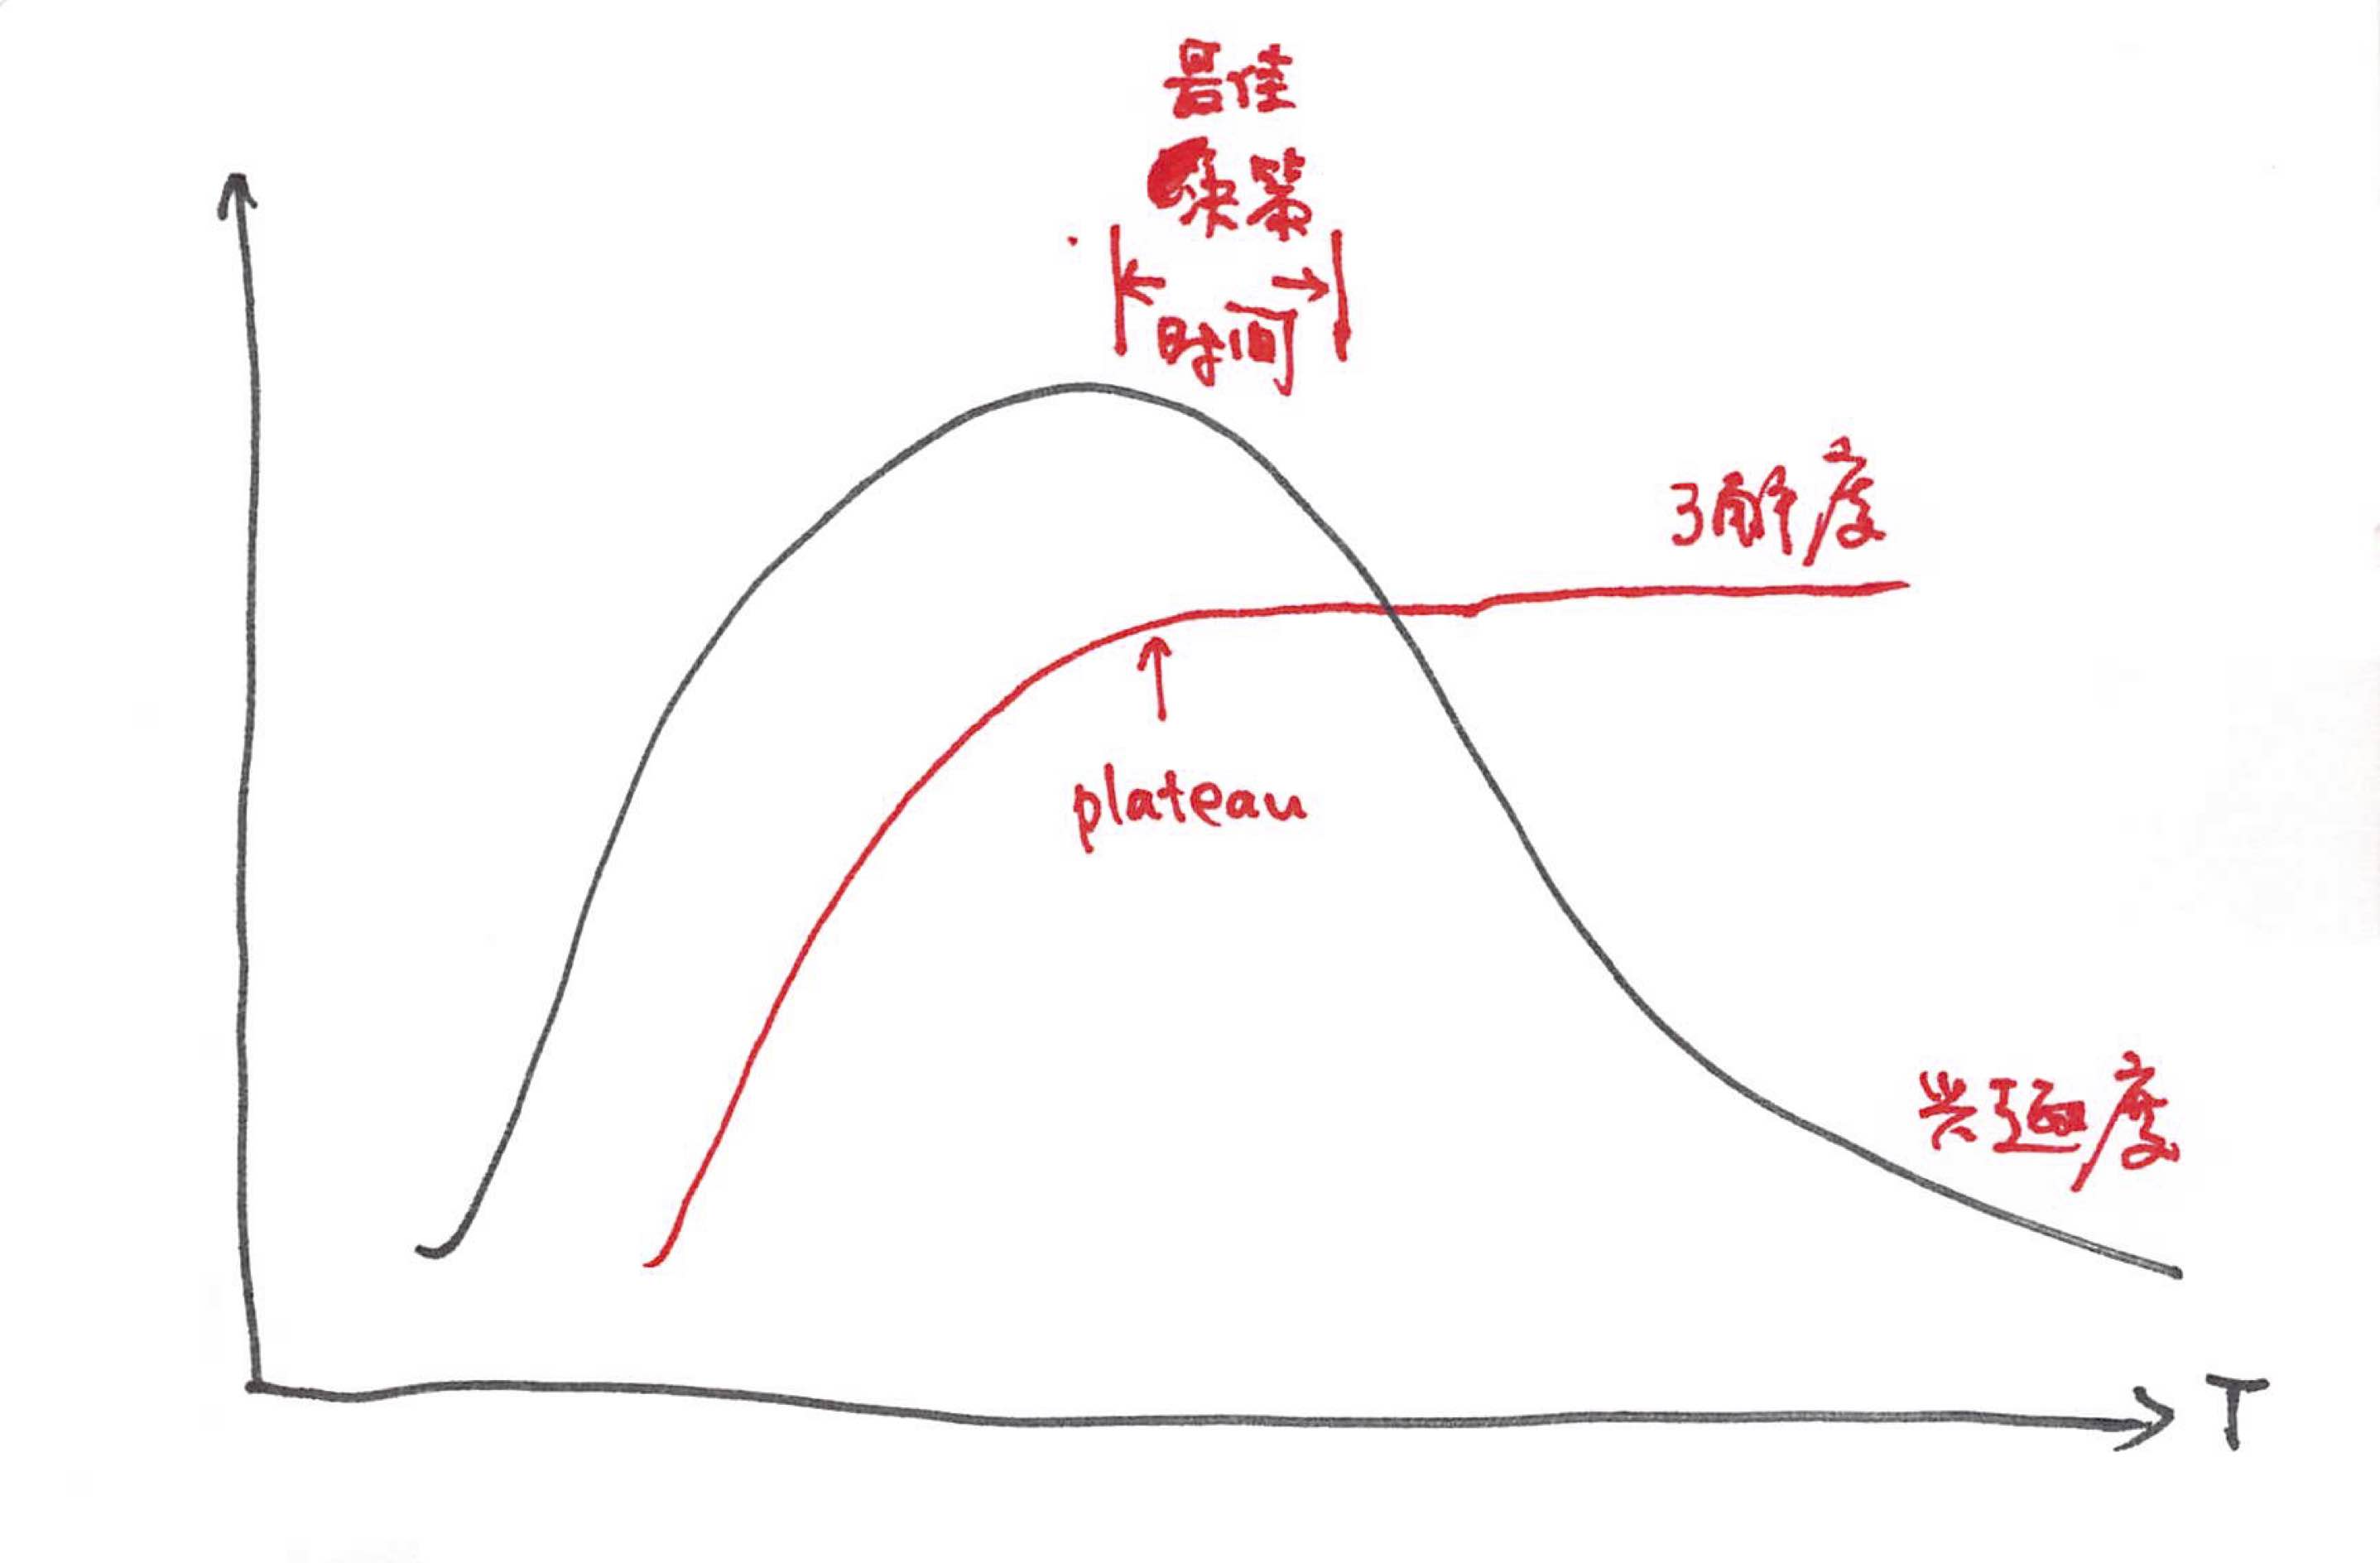 最佳
决策
时间
了解度
plateau
兴趣度
T